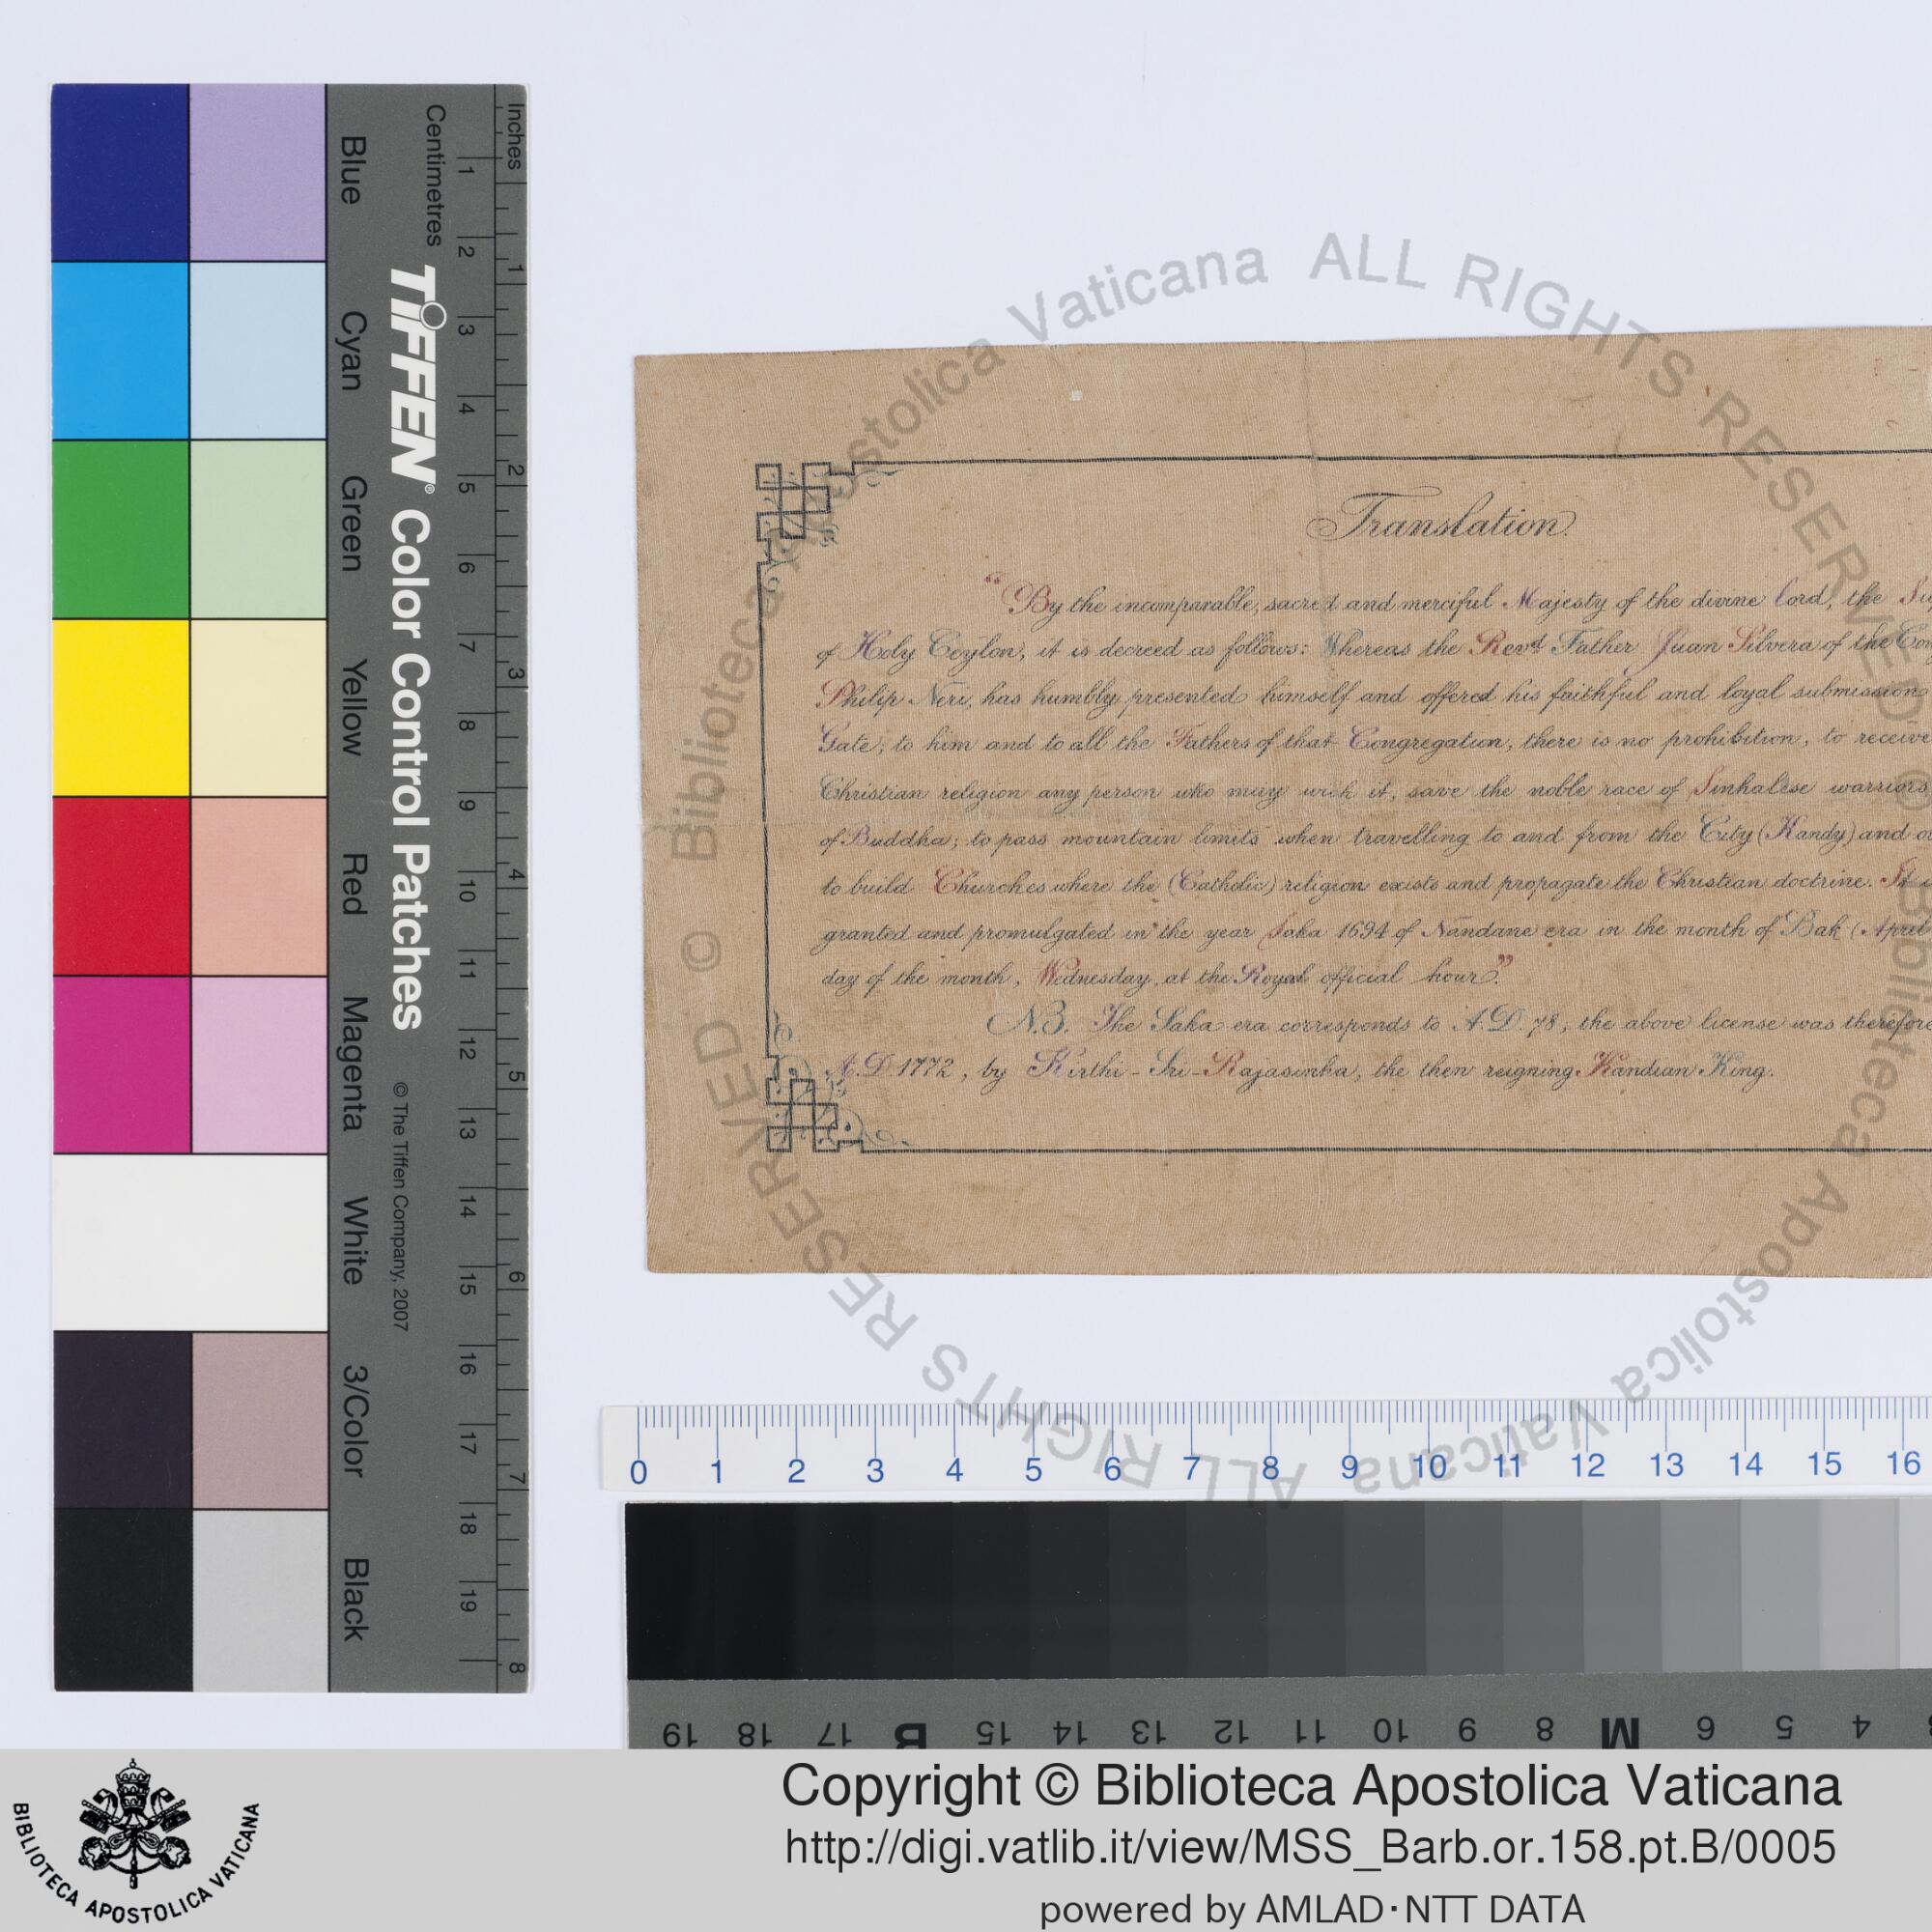 Inches
Centimetres
1 2 3 4 5 6 7 8 9 10 11 12 13 14 15 16 17 18 19
1 2 3 4 5 6 7 8
TIFFEN® Color Control Patches © The Tiffen Company, 2007
Blue Cyan Green Yellow Red Magenta White 3/Color Black
© Biblioteca Apostolica Vaticana ALL RIGHTS RESERVED © Biblioteca Apostolica Vaticana ALL RIGHTS RESERVED
Translation.
"By the incomparable, sacred and merciful Majesty of the divine Lord, the
of Holy Ceylon, it is decreed as follows: Whereas the Revd Father Juan Silvera of the
Philip Neri, has humbly presented himself and offered his faithful and loyal submission
Gate, to him and to all the Fathers of that Congregation, there is no prohibition, to receive
Christian religion any person who may wish it, save the noble race of Sinhalese warriors
of Buddha; to pass mountain limits when travelling to and from the City (Kandy) and
to build Churches where the (Catholic) religion exists and propagate the Christian doctrine. It
granted and promulgated in the year Saka 1694 of Nandane era in the month of Bak (April
day of the month, Wednesday, at the Royal official hour."
N.B. The Saka era corresponds to A.D. 78, the above license was therefore
A.D 1772, by Kirthi-Sri-Rajasinha, the then reigning Kandian King.
0 1 2 3 4 5 6 7 8 9 10 11 12 13 14 15 16
19 18 17 B 15 14 13 12 11 10 9 8 M 6 5 4
BIBLIOTECA APOSTOLICA VATICANA
Copyright © Biblioteca Apostolica Vaticana
http://digi.vatlib.it/view/MSS_Barb.or.158.pt.B/0005
powered by AMLAD·NTT DATA